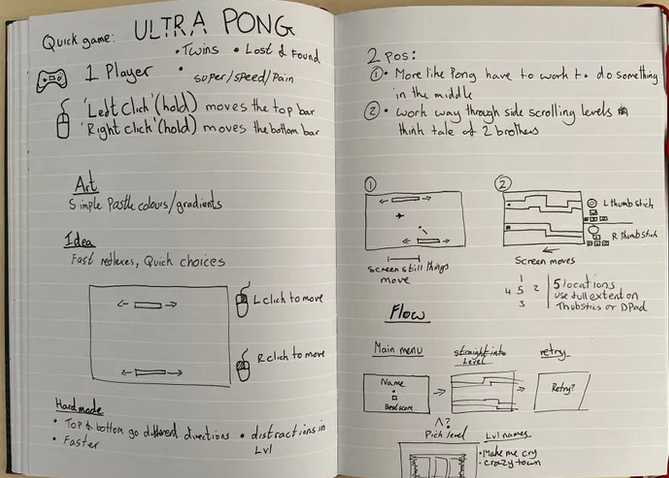 Quick game: ULTRA PONG
• Twins • Lost & Found
1 Player • super/speed/pain
'Left Click' (hold) moves the top bar
'Right click' (hold) moves the bottom bar
Art
Simple Pastle colours/gradients
Idea
Fast reflexes, Quick choices
L click to move
R click to move
Hard mode
• Top & bottom go different directions
• Faster
• distractions in
Lvl
2 pos:
① • More like Pong have to work to do something
in the middle
② • work way through side scrolling levels
think tale of 2 brothers
①
Screen still things
move
②
L thumbstick
R thumbstick
Screen moves
1
4 5 2
3
5 locations
use full extent on
Thubstics or DPad
Flow
Main menu
Name
Best score
straight into
Level
retry
Retry?
^?
Pick level
Lvl names
• Make me cry
• Crazy town